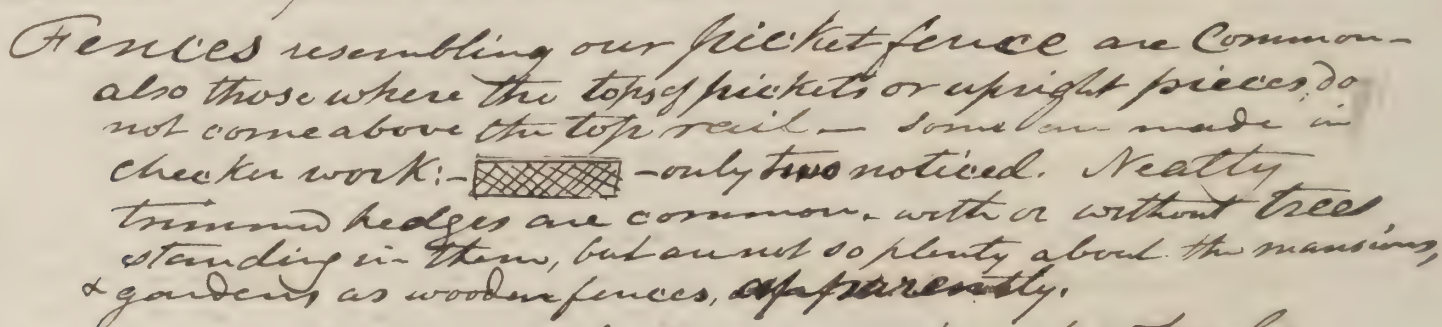 Fences resembling our picket fence are Common -
also those where the tops of pickets or upright pieces do
not come above the top rail - Some are made in
checker work: - - only two noticed. Neatly
trimmed hedges are common - with or without trees
standing in them, but are not so plenty about the mansions,
& gardens as wooden fences, apparently.